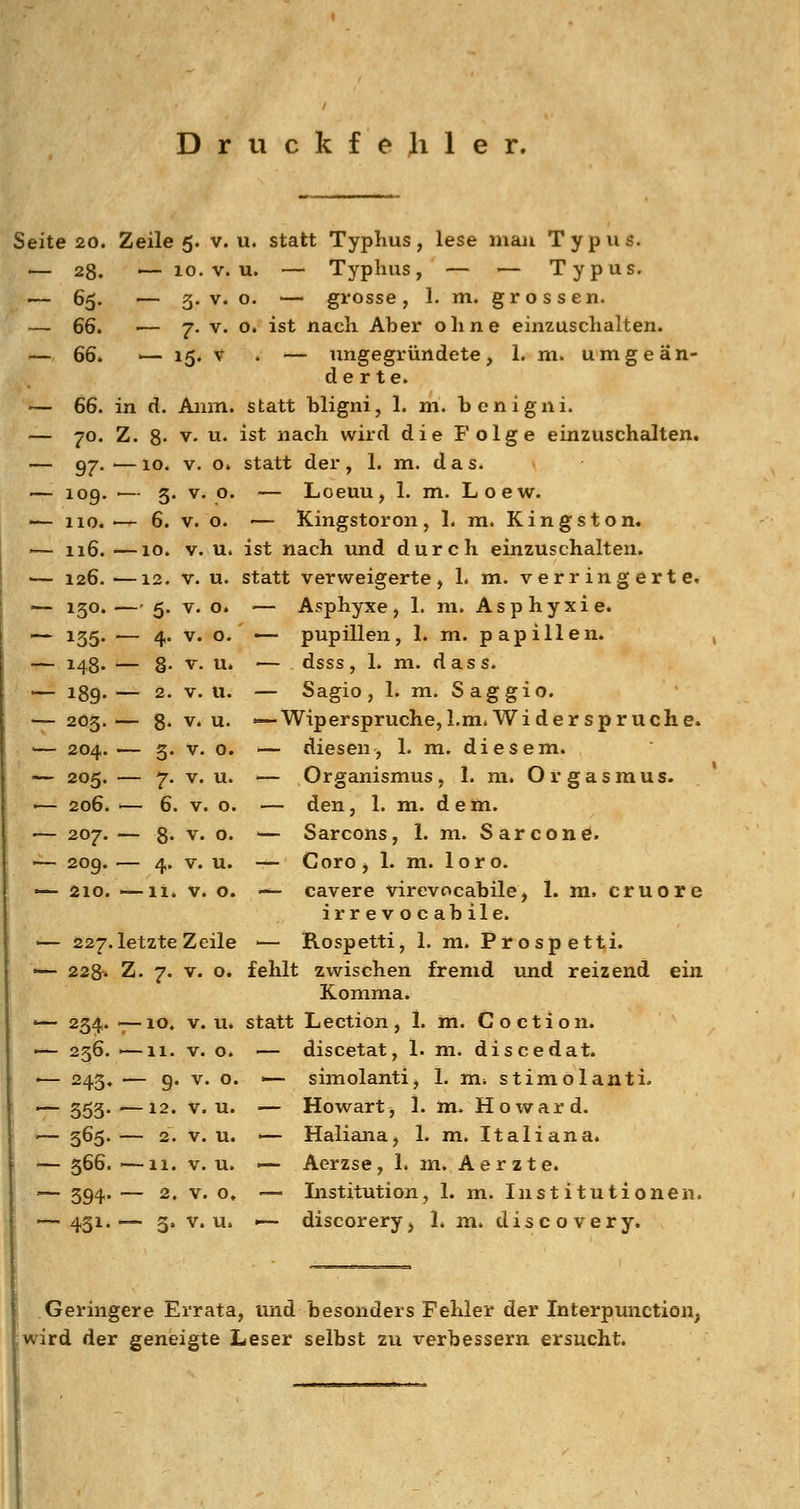 Druckfehler.
Seite 20. Zeile 5. v. u. statt Typhus, lese man Typus.
— 28. — 10. v. u. — Typhus, — — Typus.
— 65. — 3. v. o. — grosse, l. m. grossen.
— 66. — 7. v. o. ist nach Aber ohne einzuschalten.
— 66. — 15. v . — ungegründete, l. m. umgeän-
derte.
— 66. in d. Anm. statt bligni, l. m. benigni.
— 70. Z. 8. v. u. ist nach wird die Folge einzuschalten.
— 97. — 10. v. o. statt der, l. m. das.
— 109. — 3. v. o. — Loeuu, l. m. Loew.
— 110. — 6. v. o. — Kingstoron, l. m. Kingston.
— 116. — 10. v. u. ist nach und durch einzuschalten.
— 126. — 12. v. u. statt verweigerte, l. m. verringerte.
— 130. — 5. v. o. — Asphyxe, l. m. Asphyxie.
— 135. — 4. v. o. — pupillen, l. m. papillen.
— 148. — 8. v. u. — dsss, l. m. dass.
— 189. — 2. v. u. — Sagio, l. m. Saggio.
— 203. — 8. v. u. — Wiperspruche, l. m. Widerspruche.
— 204. — 3. v. o. — diesen, l. m. diesem.
— 205. — 7. v. u. — Organismus, l. m. Orgasmus.
— 206. — 6. v. o. — den, l. m. dem.
— 207. — 8. v. o. — Sarcons, l. m. Sarcone.
— 209. — 4. v. u. — Coro, l. m. loro.
— 210. — 11. v. o. — cavere virevocabile, l. m. cruore
irrevocabile.
— 227. letzte Zeile — Rospetti, l. m. Prospetti.
— 228. Z. 7. v. o. fehlt zwischen fremd und reizend ein
Komma.
— 234. — 10. v. u. statt Lection, l. m. Coction.
— 236. — 11. v. o. — discetat, l. m. discedat.
— 243. — 9. v. o. — simolanti, l. m. stimolanti.
— 353. — 12. v. u. — Howart, l. m. Howard.
— 365. — 2. v. u. — Haliana, l. m. Italiana.
— 366. — 11. v. u. — Aerzse, l. m. Aerzte.
— 394. — 2. v. o. — Institution, l. m. Institutionen.
— 431. — 3. v. u. — discorery, l. m. discovery.
Geringere Errata, und besonders Fehler der Interpunction,
wird der geneigte Leser selbst zu verbessern ersucht.